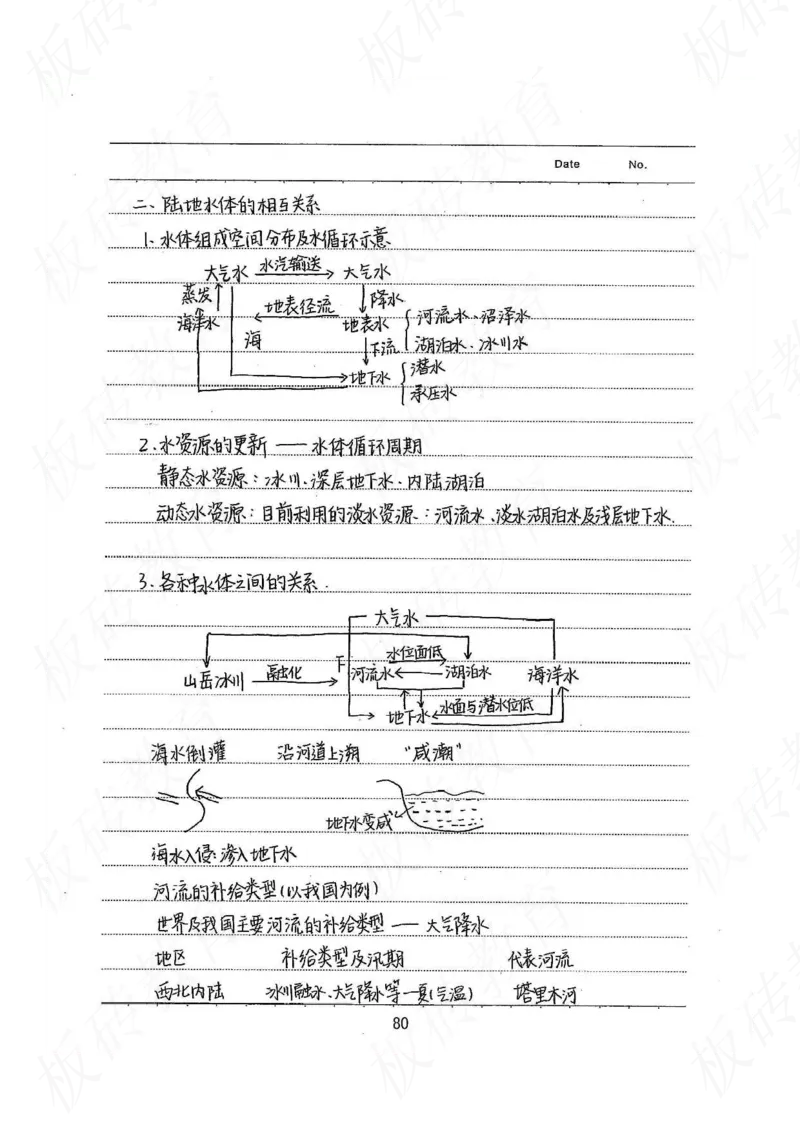 Date No.
二、陆地水体的相互关系
1、水体组成空间分布及水循环示意
大气水 水汽输送 大气水
蒸发 降水
海洋水 地表径流 地表水 河流水、沼泽水
海 下流 湖泊水、冰川水
地下水 潜水
承压水
2、水资源的更新 —— 水体循环周期
静态水资源：冰川、深层地下水、内陆湖泊
动态水资源：目前利用的淡水资源：河流水、淡水湖泊水及浅层地下水.
3、各种水体之间的关系.
大气水
山岳冰川 融化 下 河流水 水位面低 湖泊水 海洋水
地下水 水面与潜水位低
海水倒灌 沿河道上溯 “咸潮”
地下水变咸
海水入侵：渗入地下水
河流的补给类型（以我国为例）
世界及我国主要河流的补给类型 —— 大气降水
地区 补给类型及汛期 代表河流
西北内陆 冰川融水、大气降水等一夏（气温） 塔里木河
80
板砖教育